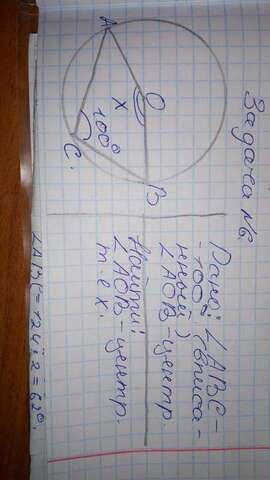 Задача №6.
A
O
X
100°
C.
B
Дано: ∠ABC -
- 100° (вписа-
нный)
∠AOB - центр.
Найти:
∠AOB - центр.
т. е. x.
= 124:2 = 62°.